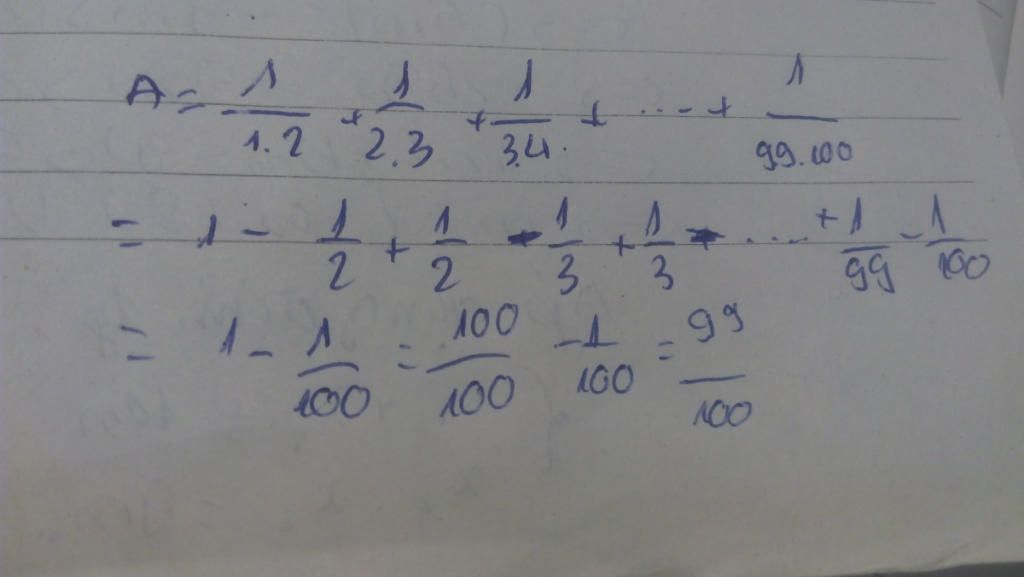 A = 1/1.2 + 1/2.3 + 1/3.4. + ...- + 1/99.100
= 1 - 1/2 + 1/2 - 1/3 + 1/3 - .... + 1/99 - 1/100
= 1 - 1/100 = 100/100 - 1/100 = 99/100